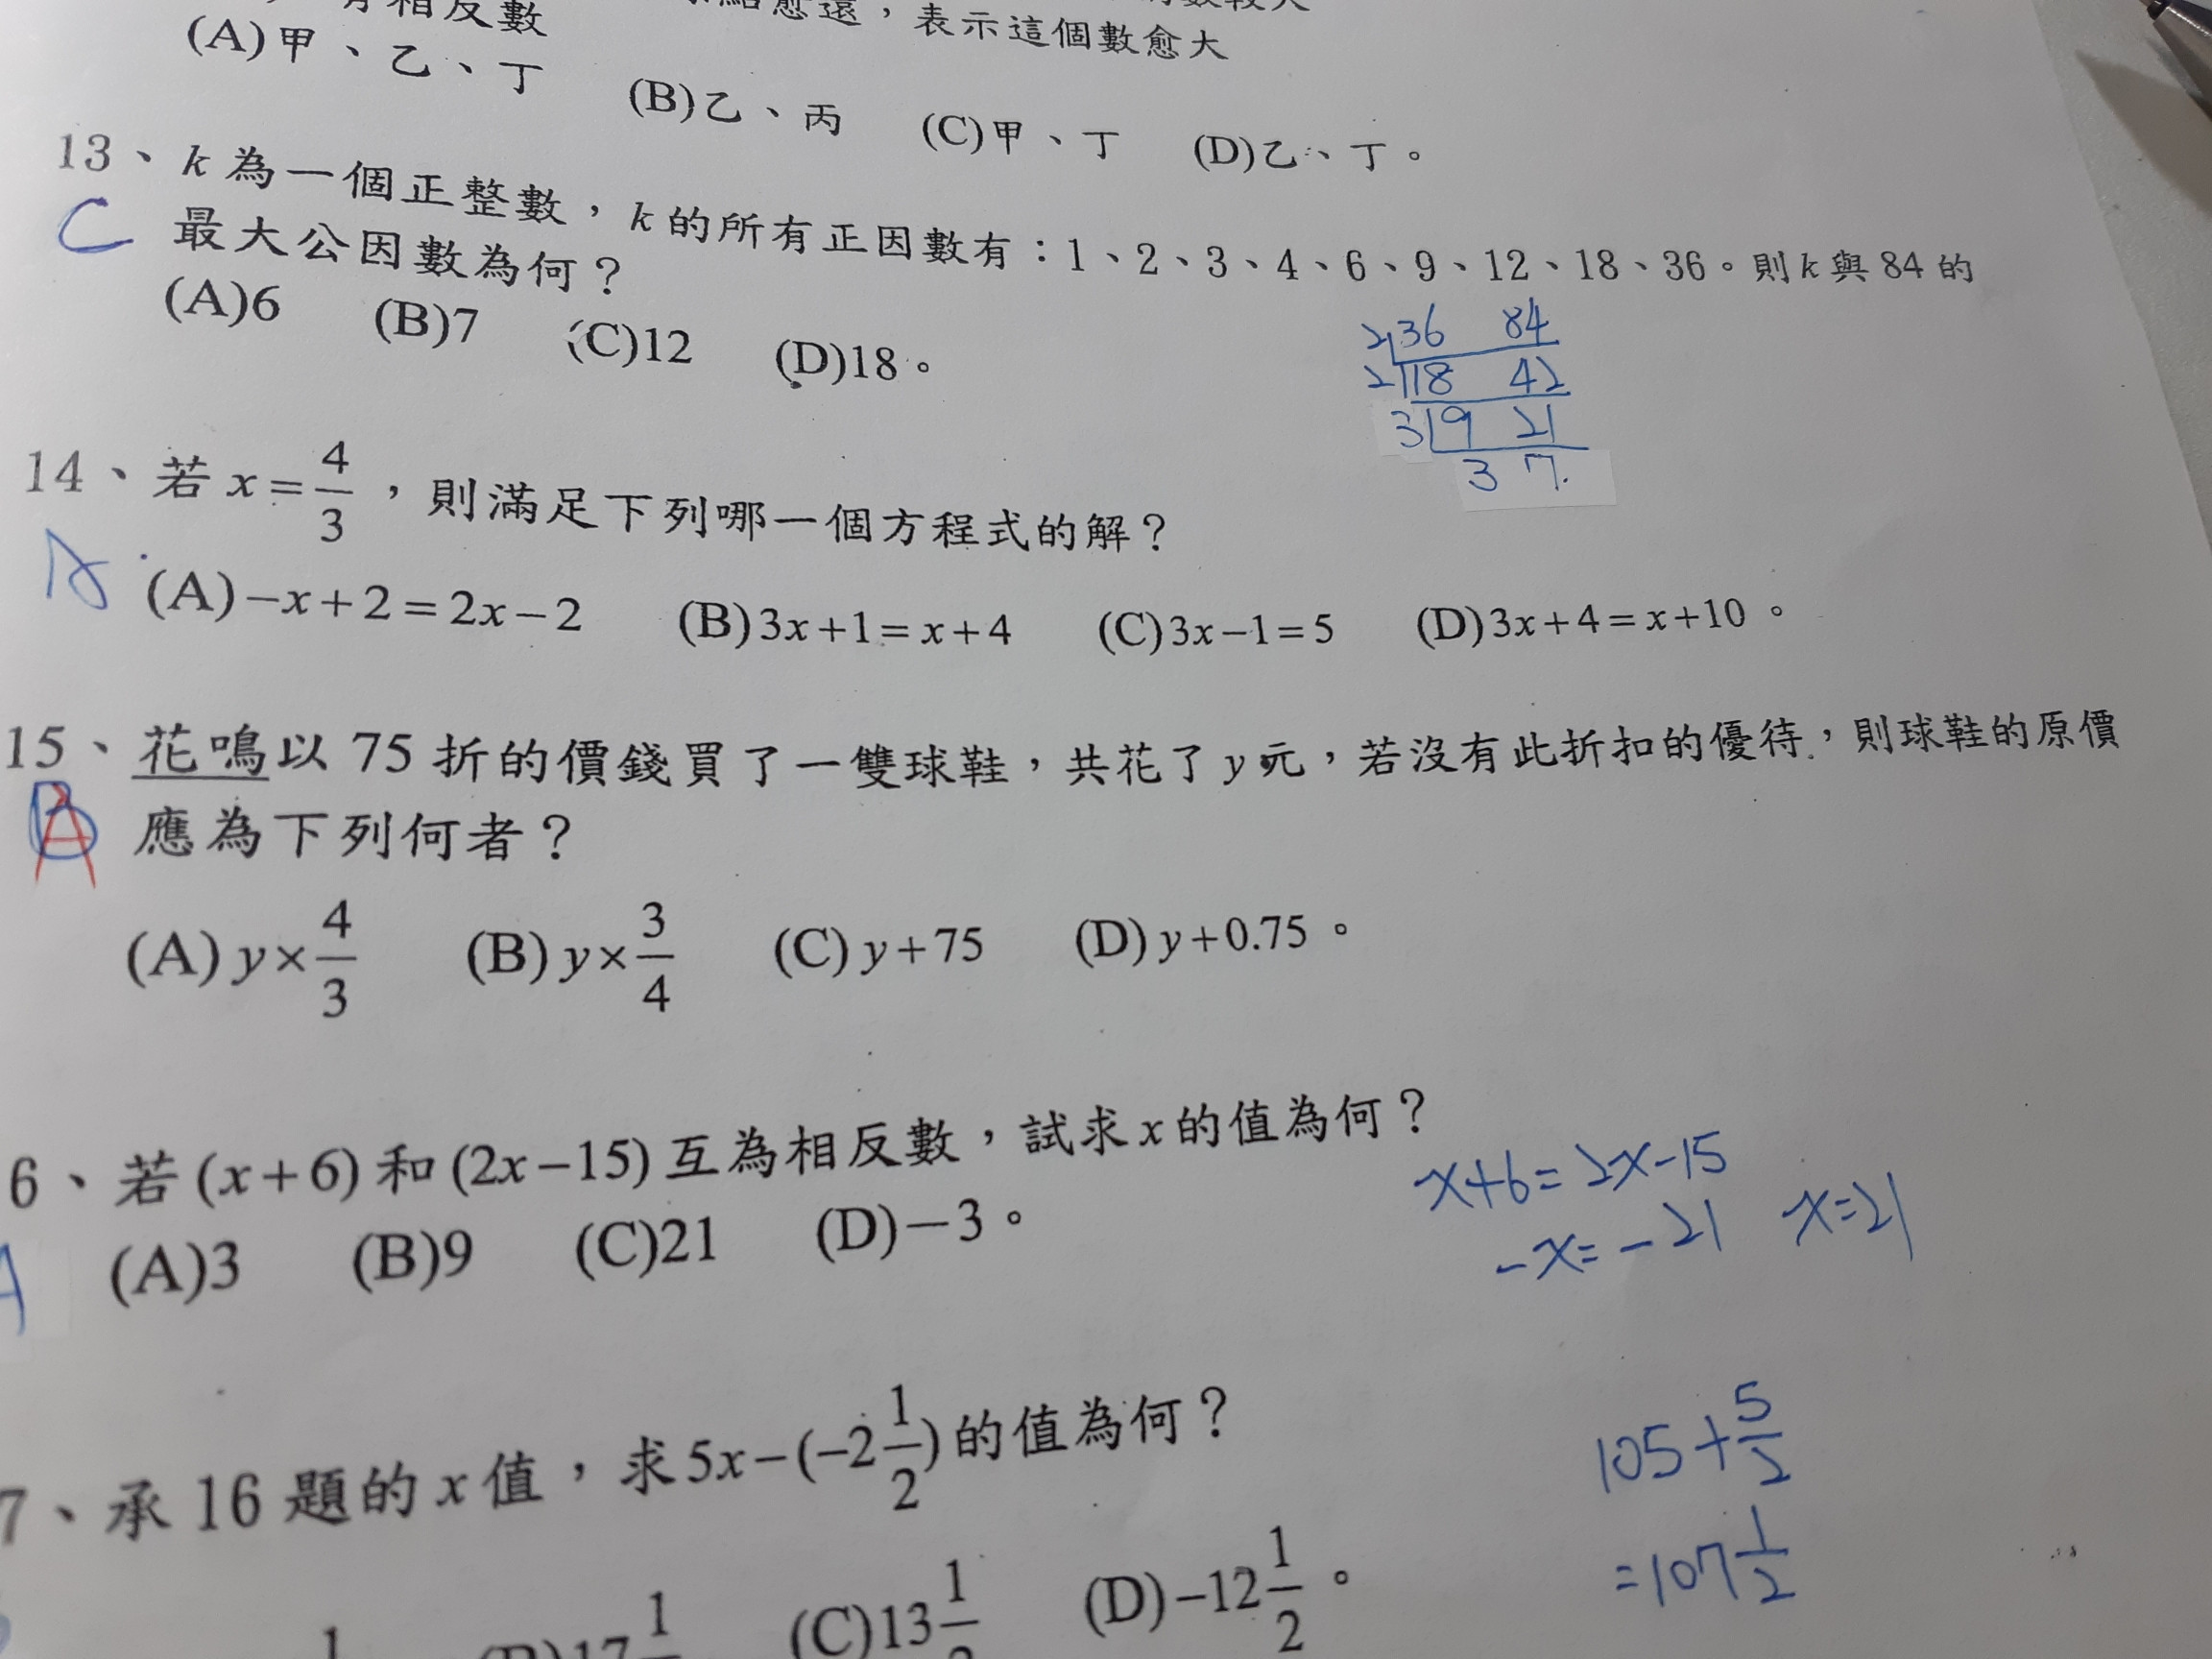 有相反數
點愈遠，表示這個數愈大
(A)甲、乙、丁 (B)乙、丙 (C)甲、丁 (D)乙、丁。
13、k為一個正整數，k的所有正因數有：1、2、3、4、6、9、12、18、36。則k與84的
C 最大公因數為何？
(A)6 (B)7 (C)12 (D)18。
2 36 84
2 18 42
3 9 21
3 7.
14、若x=4/3，則滿足下列哪一個方程式的解？
A (A)−x+2=2x−2 (B)3x+1=x+4 (C)3x−1=5 (D)3x+4=x+10。
15、花鳴以75折的價錢買了一雙球鞋，共花了y元，若沒有此折扣的優待，則球鞋的原價
B A 應為下列何者？
(A)y×4/3 (B)y×3/4 (C)y+75 (D)y+0.75。
6、若(x+6)和(2x−15)互為相反數，試求x的值為何？
x+6=2x-15
-x=-21 x=21
A (A)3 (B)9 (C)21 (D)−3。
7、承16題的x值，求5x−(−2 1/2)的值為何？
105+5/2
=107 1/2
(C)13 1/2 (D)−12 1/2。